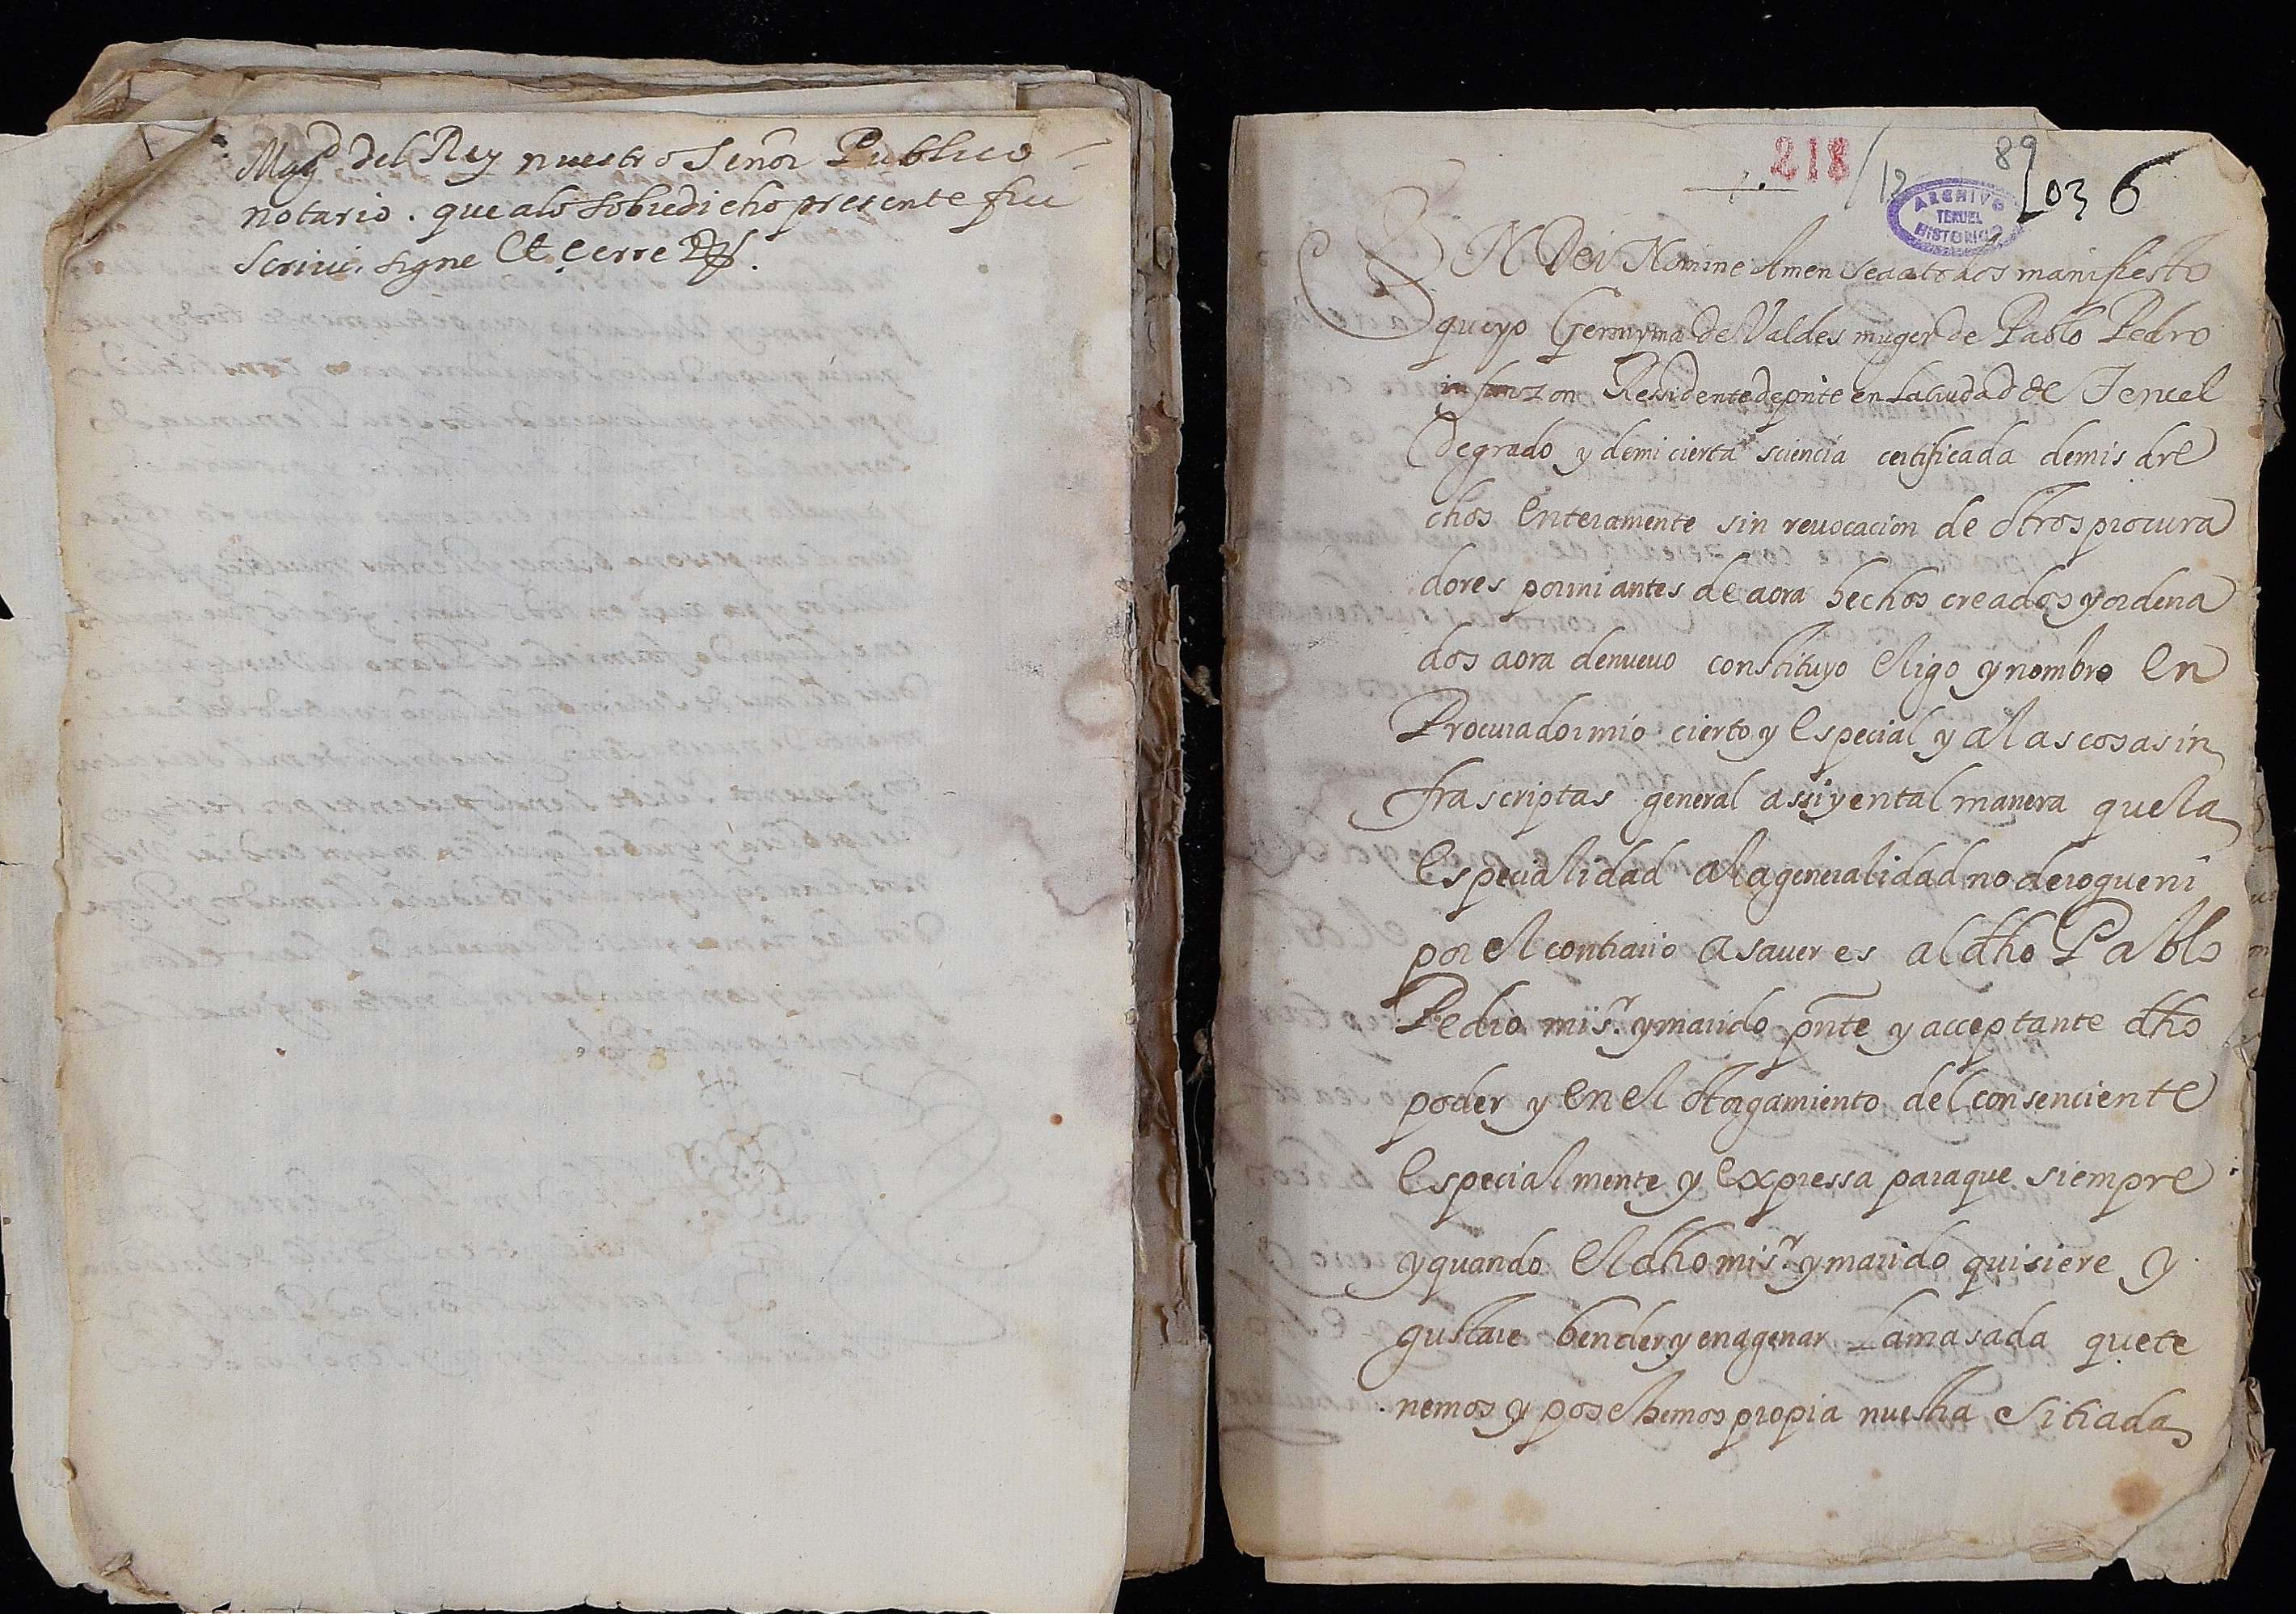 Magd del Rey nuestro Señor Publico
notario. que alo sobredicho presente fui
scriui, signe Et cerre
218 / 12 89
1036
ARCHIVO
TERUEL
HISTORICO
EN Dei Nomine Amen sea a todos manifiesto
que yo Geronyma de Valdes muger de Pablo Pedro
infanzon Ressidente de pnte en la ciudad de Teruel
de grado y de mi cierta sciencia certificada de mis dre
chos enteramente sin reuocacion de otros procura
dores por mi antes de aora hechos creados y ordena
dos aora de nueuo constituyo eligo y nombro en
Procurador mio cierto y especial y a las cosas in
frascriptas general assi y en tal manera que la
especialidad a la generalidad no derogue ni
por el contrario a sauer es al dho Pablo
Pedro mi sr. y marido pnte y acceptante dho
poder y en el otorgamiento del consenciente
especialmente y expressa para que siempre
y quando el dho mi sr. y marido quisiere y
gustare bender y enagenar la masada que te
nemos y posehemos propia nuestra sitiada